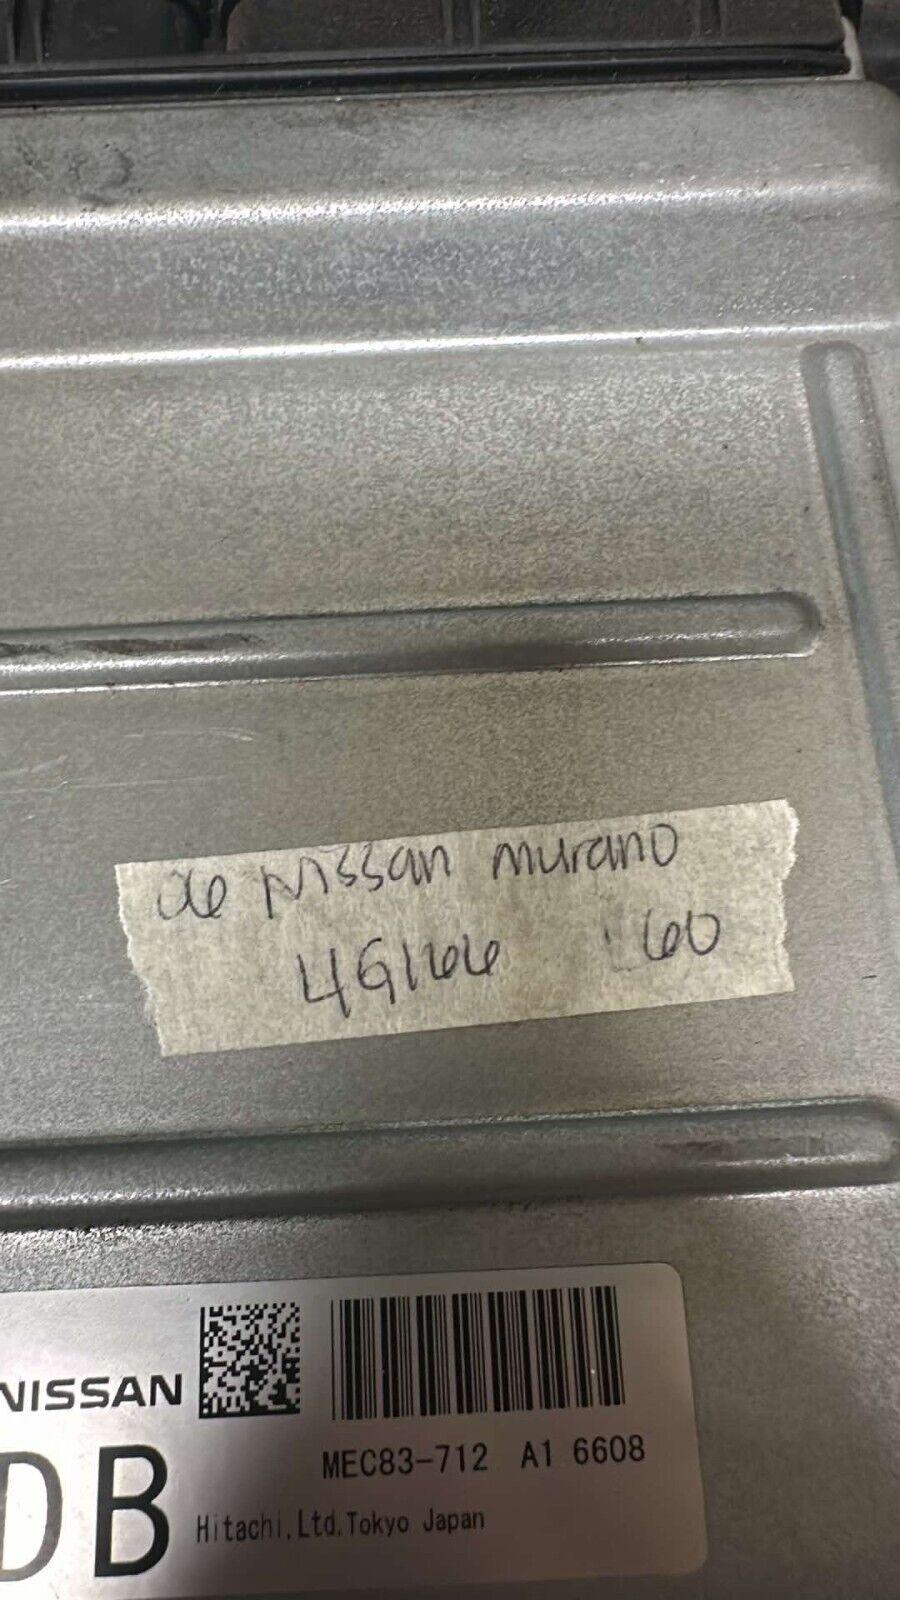 06 Nissan murano
4G166 60
NISSAN
MEC83-712 A1 6608
DB
Hitachi,Ltd.Tokyo Japan